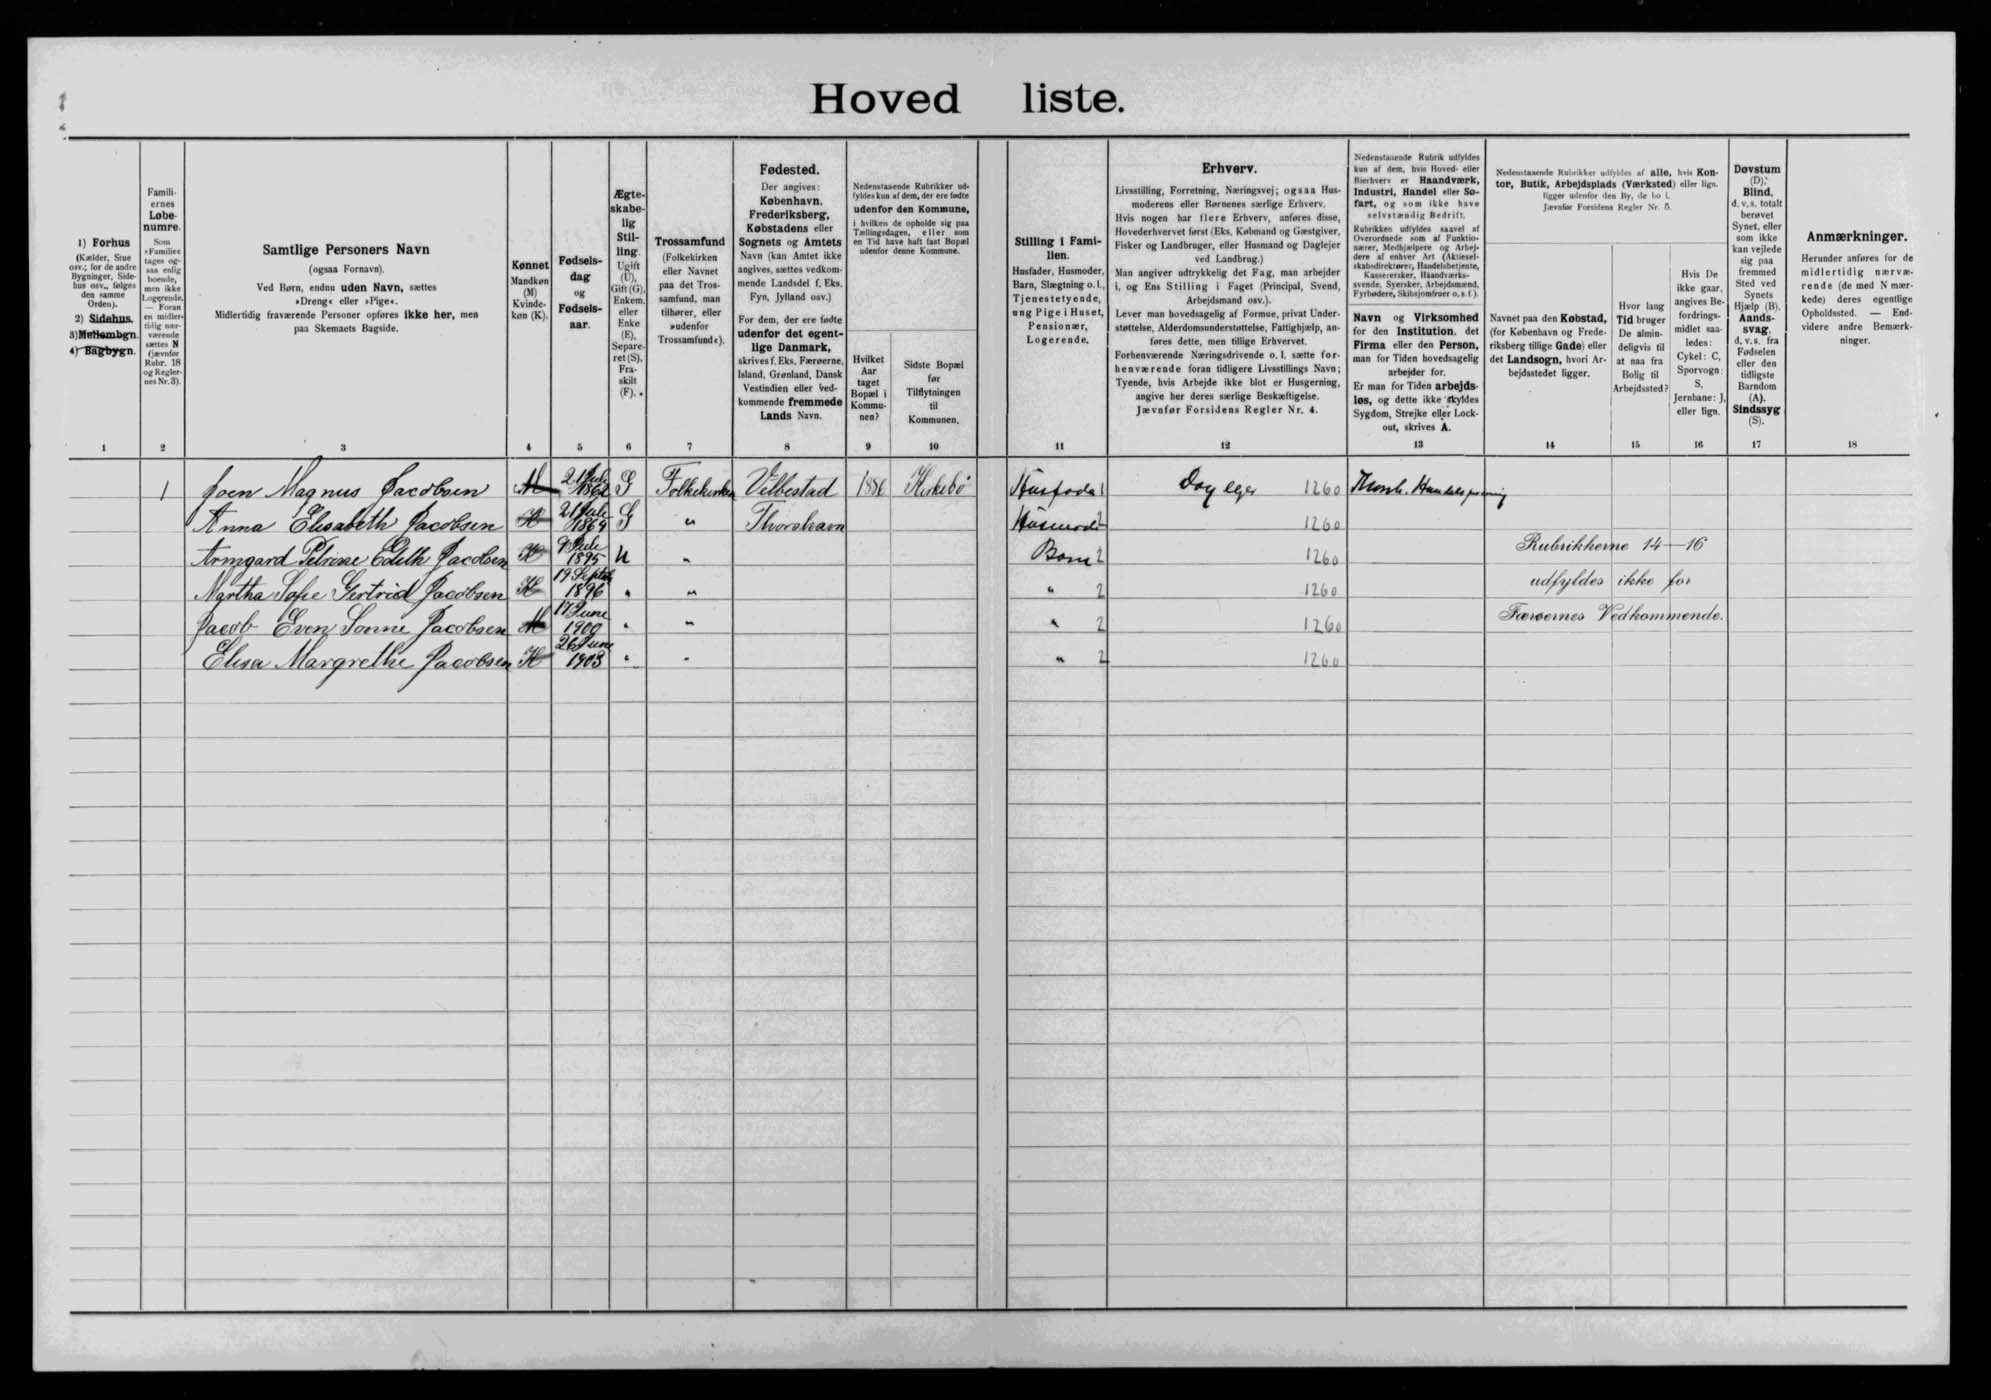 Hoved liste.
1) Forhus
(Kælder, Stue
osv.; for de andre
Bygninger, Side-
hus osv., følges
den samme
Orden).
2) Sidehus.
3) Mellembgn.
4) Bagbygn.
1
Famili-
ernes
Løbe-
numre.
Som
»Familie«
tages og-
saa enlig
boende,
men ikke
Logerende.
— Foran
en midler-
tidig nær-
værende
sættes N
(jævnfør
Rubr. 18
og Regler-
nes Nr. 3).
2
Samtlige Personers Navn
(ogsaa Fornavn).
Ved Børn, endnu uden Navn, sættes
»Dreng« eller »Pige«.
Midlertidig fraværende Personer opføres ikke her, men
paa Skemaets Bagside.
3
Kønnet
Mandkøn
(M)
Kvinde-
køn (K).
4
Fødsels-
dag
og
Fødsels-
aar.
5
Ægte-
skabe-
lig
Stil-
ling.
Ugift
(U),
Gift (G),
Enkem.
eller
Enke
(E),
Separe-
ret (S),
Fra-
skilt
(F).
6
Trossamfund
(Folkekirken
eller Navnet
paa det Tros-
samfund, man
tilhører, eller
»udenfor
Trossamfund«).
7
Fødested.
Der angives:
København,
Frederiksberg,
Købstadens eller
Sognets og Amtets
Navn (kan Amtet ikke
angives, sættes vedkom-
mende Landsdel f. Eks.
Fyn, Jylland osv.)
For dem, der ere fødte
udenfor det egent-
lige Danmark,
skrives f. Eks. Færøerne,
Island, Grønland, Dansk
Vestindien eller ved-
kommende fremmede
Lands Navn.
8
Nedenstaaende Rubrikker ud-
fyldes kun af dem, der ere fødte
udenfor den Kommune,
i hvilken de opholde sig paa
Tællingsdagen, eller som
en Tid have haft fast Bopæl
udenfor denne Kommune.
Hvilket
Aar
taget
Bopæl i
Kommu-
nen?
9
Sidste Bopæl
før
Tilflytningen
til
Kommunen.
10
Stilling i Fami-
lien.
Husfader, Husmoder,
Barn, Slægtning o. l.,
Tjenestetyende,
ung Pige i Huset,
Pensionær,
Logerende.
11
Erhverv.
Livsstilling, Forretning, Næringsvej; ogsaa Hus-
moderens eller Børnenes særlige Erhverv.
Hvis nogen har flere Erhverv, anføres disse,
Hovederhvervet først (Eks. Købmand og Gæstgiver,
Fisker og Landbruger, eller Husmand og Daglejer
ved Landbrug.)
Man angiver udtrykkelig det Fag, man arbejder
i, og Ens Stilling i Faget (Principal, Svend,
Arbejdsmand osv.).
Lever man hovedsagelig af Formue, privat Under-
støttelse, Alderdomsunderstøttelse, Fattighjælp, an-
føres dette, men tillige Erhvervet.
Forhenværende Næringsdrivende o. l. sætte for-
henværende foran tidligere Livsstillings Navn;
Tyende, hvis Arbejde ikke blot er Husgerning,
angive her deres særlige Beskæftigelse.
Jævnfør Forsidens Regler Nr. 4.
12
Nedenstaaende Rubrik udfyldes
kun af dem, hvis Hoved- eller
Bierhverv er Haandværk,
Industri, Handel eller Sø-
fart, og som ikke have
selvstændig Bedrift.
Rubrikken udfyldes saavel af
Overordnede som af Funktio-
nærer, Medhjælpere og Arbej-
dere af enhver Art (Aktiesel-
skabsdirektører, Handelsbetjente,
Kassereresker, Haandværks-
svende, Syersker, Arbejdsmænd,
Fyrbødere, Skibsjomfruer o. s. f.).
Navn og Virksomhed
for den Institution, det
Firma eller den Person,
man for Tiden hovedsagelig
arbejder for.
Er man for Tiden arbejds-
løs, og dette ikke skyldes
Sygdom, Strejke eller Lock-
out, skrives A.
13
Nedenstaaende Rubrikker udfyldes af alle, hvis Kon-
tor, Butik, Arbejdsplads (Værksted) eller lign.
ligger udenfor den By, de bo i.
Jævnfør Forsidens Regler Nr. 5.
Navnet paa den Købstad,
(for København og Frede-
riksberg tillige Gade) eller
det Landsogn, hvori Ar-
bejdsstedet ligger.
14
Hvor lang
Tid bruger
De almin-
deligvis til
at naa fra
Bolig til
Arbejdssted?
15
Hvis De
ikke gaar,
angives Be-
fordrings-
midlet saa-
ledes:
Cykel: C,
Sporvogn:
S,
Jernbane: J,
eller lign.
16
Døvstum
(D),
Blind,
d. v. s. totalt
berøvet
Synet, eller
som ikke
kan vejlede
sig paa
fremmed
Sted ved
Synets
Hjælp (B).
Aands-
svag,
d. v. s. fra
Fødselen
eller den
tidligste
Barndom
(A).
Sindssyg
(S).
17
Anmærkninger.
Herunder anføres for de
midlertidig nærvæ-
rende (de med N mær-
kede) deres egentlige
Opholdssted. — End-
videre andre Bemærk-
ninger.
18
1 Joen Magnus Jacobsen M 21 Juli 1862 G Folkekirken Velbestad 1886 Kirkebö Husfader 1 Dag eger 1260
Anna Elisabeth Jacobsen K 21 Juli 1864 G " Thorshavn Husmoder 2 1260
Armgard Petrine Edith Jacobsen K Juli 1895 U " Barn 2 1260
Martha Sofie Gertrid Jacobsen K 19 Septbr 1896 " " " 2 1260
Jacob Even Sonne Jacobsen M 17 June 1900 " " " 2 1260
Elisa Margrethe Jacobsen K 26 June 1903 " " " 2 1260
Rubrikkerne 14—16
udfyldes ikke for
Færøernes Vedkommende.